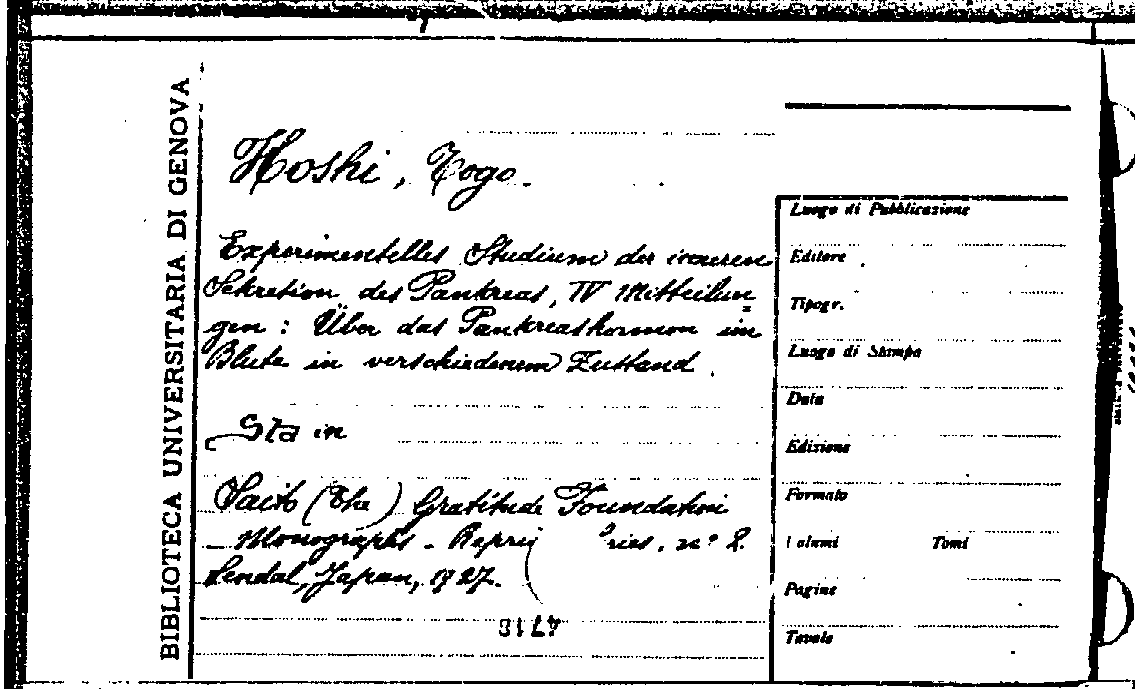 BIBLIOTECA UNIVERSITARIA DI GENOVA
Hoshi, Togo.
Experimentelles Studium der inneren
Sekretion des Pankreas, IV Mitteilun=
gen: Über das Pankreashormon im
Blute in verschiedenem Zustand.
Sta in
Saito (The) Gratitude Foundation
Monographs - Repri ries. n° 2.
Sendal, Japan, 1927.
4718
Luogo di Pubblicazione
Editore
Tipogr.
Luogo di Stampa
Data
Edizione
Formato
Volumi Tomi
Pagine
Tavole